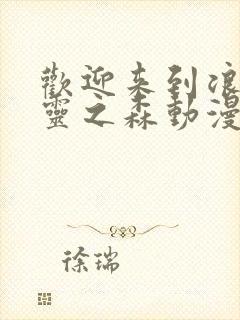 歡迎来到浪
靈之森動漫
徐瑞